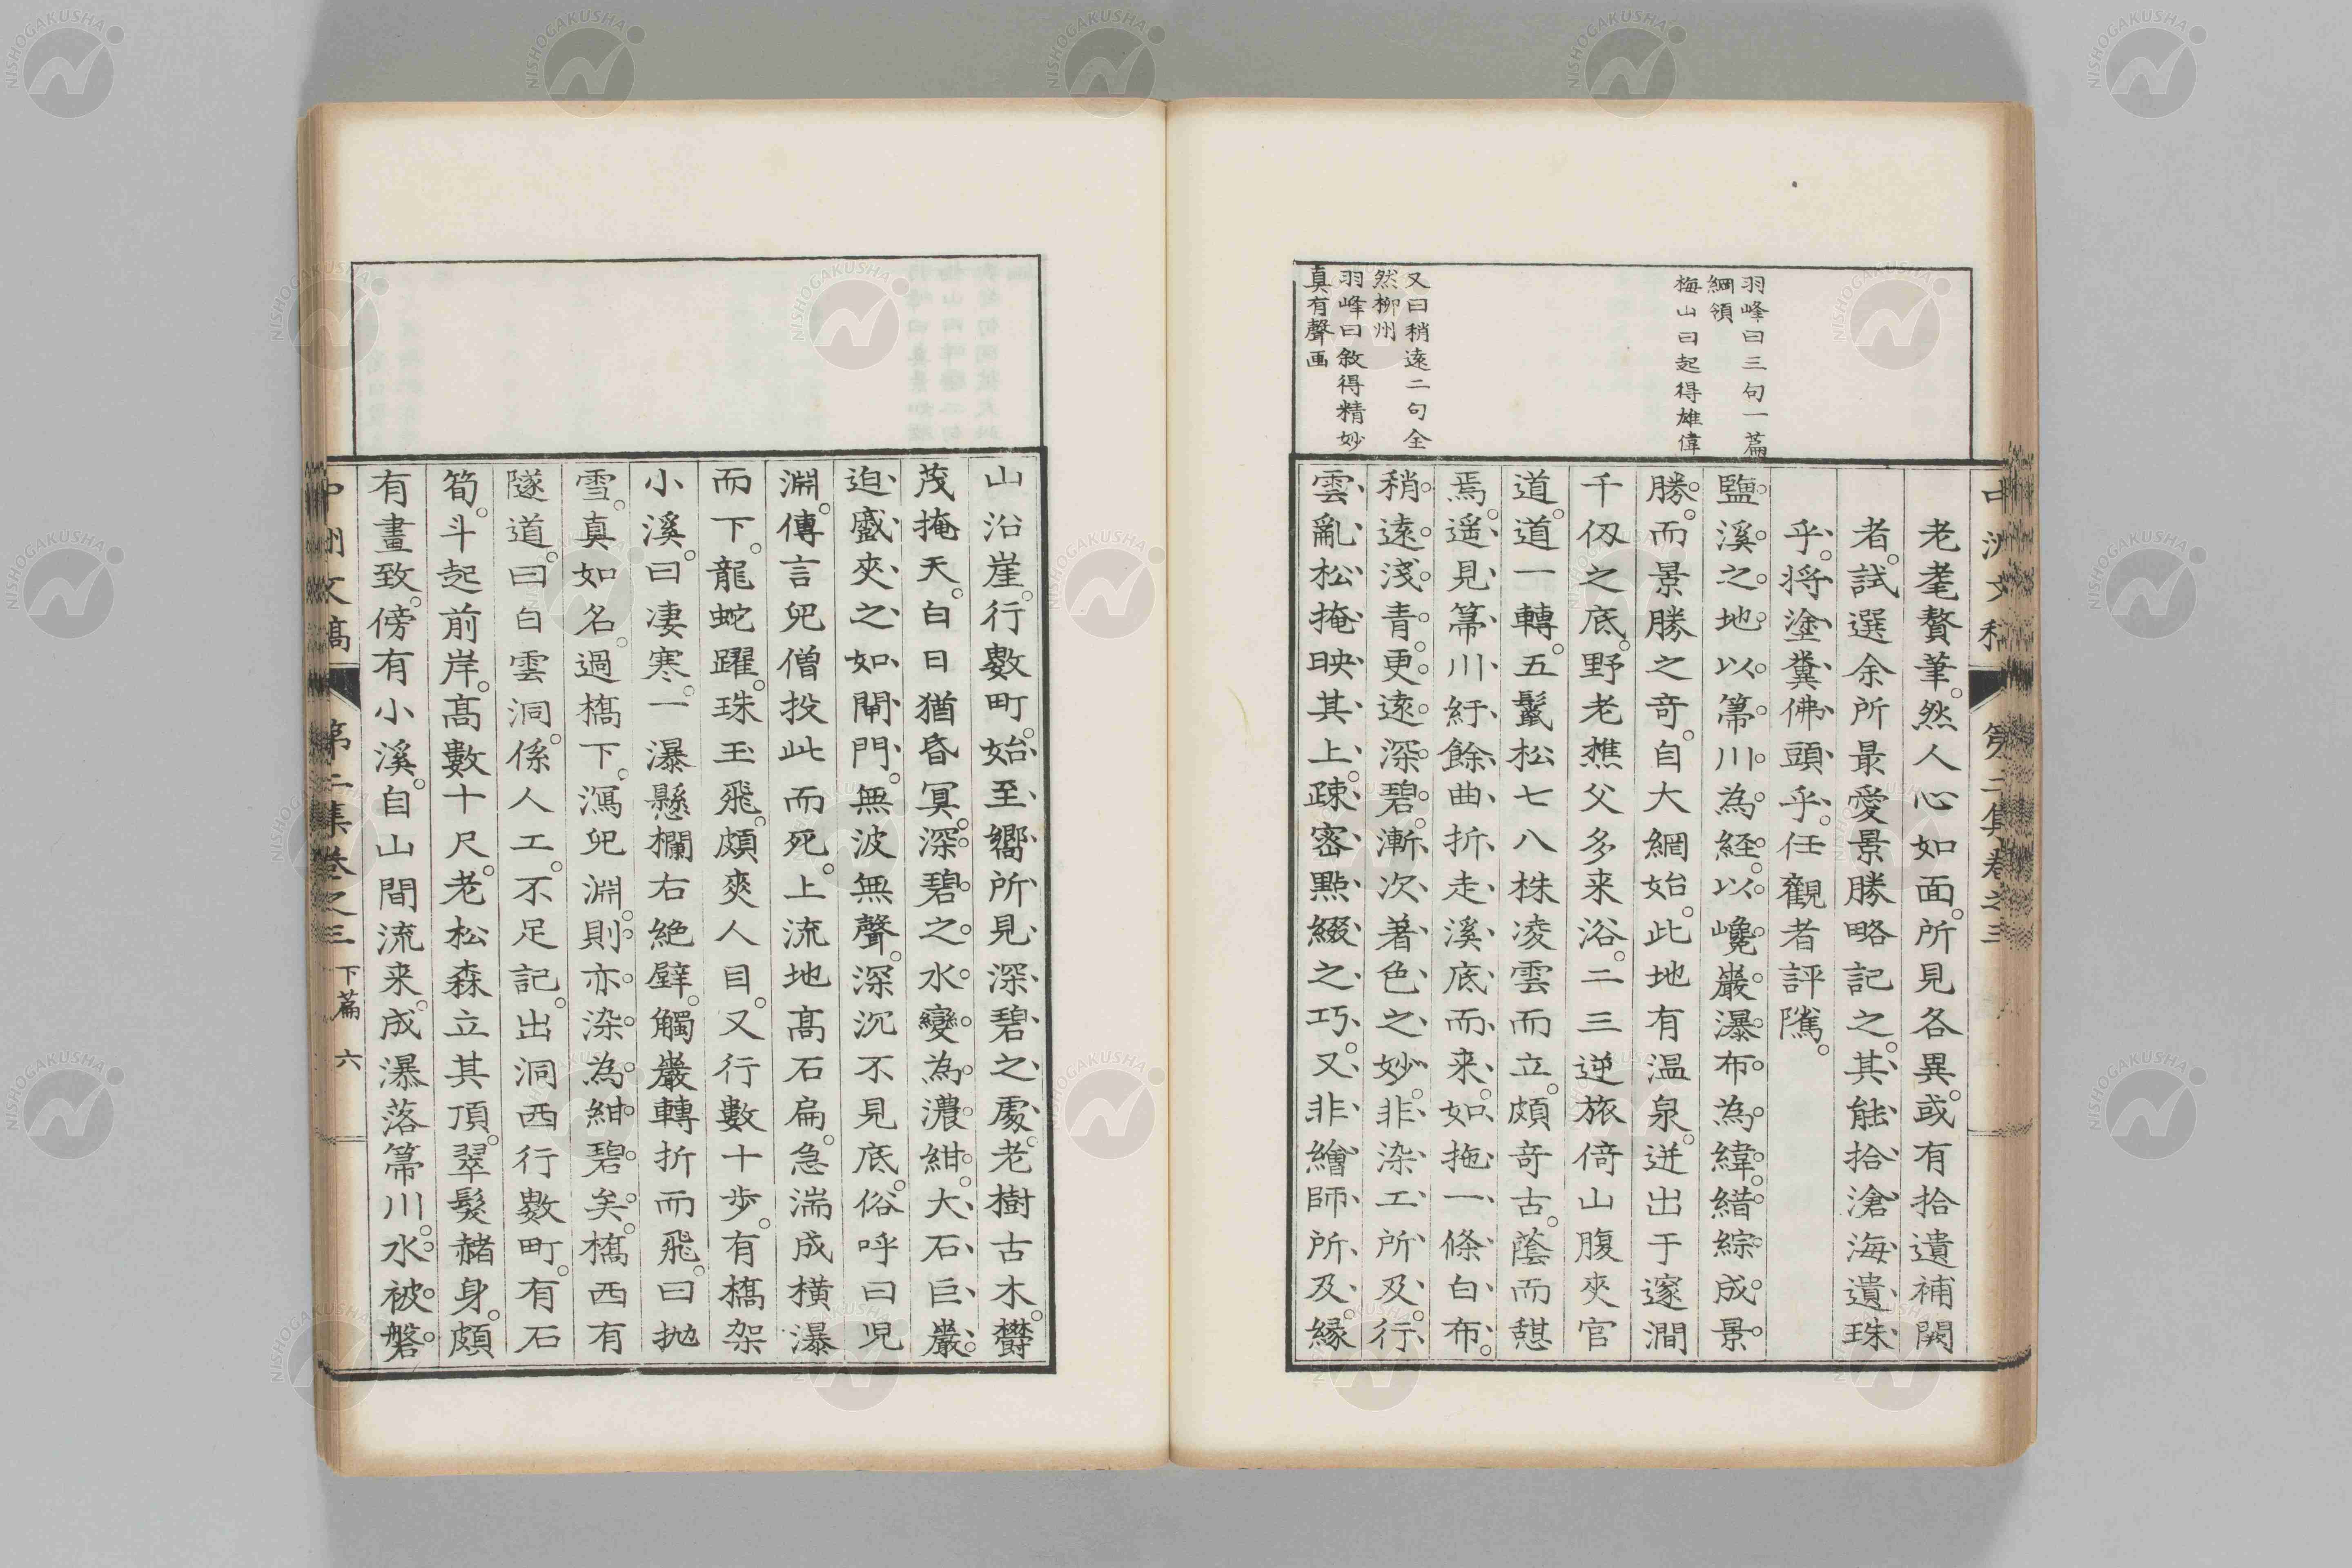 羽峰曰三句一篇
綱領
梅山曰起得雄偉
又曰稍遠二句全
然柳州
羽峰曰敘得精妙
真有聲画
老耄贅筆。然人心如面。所見各異。或有拾遺補闕
者。試選余所最愛景勝略記之。其能拾滄海遺珠
乎。將塗糞佛頭乎。任觀者評隲。
鹽溪之地。以箒川為経。以巉巖瀑布為緯。錯綜成景
勝。而景勝之奇。自大網始。此地有温泉。迸出于邃澗
千仭之底。野老樵父多来浴。二三逆旅倚山腹夾官
道。道一轉。五鬣松七八株凌雲而立。頗奇古。蔭而憇
焉。遥見箒川紆餘曲折走溪底而来。如拖一條白布。
稍遠淺青。更遠深碧。漸次著色之妙。非染工所及。行
雲亂松掩映其上。踈密點綴之巧。又非繪師所及。縁
山沿崖。行數町。始至嚮所見深碧之處。老樹古木。欝
茂掩天。白日猶昏冥。深碧之水變為濃紺。大石巨巖。
迫蹙夾之。如閘門。無波無聲。深沉不見底。俗呼曰児
淵。傳言兒僧投此而死。上流地髙石扁。急湍成横瀑
而下。龍蛇躍。珠玉飛。頗爽人目。又行數十歩。有橋架
小溪。曰凄寒。一瀑懸欄右絶壁。觸巖轉折而飛。曰抛
雪。真如名。過橋下。瀉兒淵。則亦染為紺碧矣。橋西有
隧道。曰白雲洞。係人工。不足記。出洞西行數町。有石
筍。斗起前岸。髙數十尺。老松森立其頂。翠髮赭身。頗
有畫致。傍有小溪。自山間流来。成瀑落箒川。水被磐
中洲文稿 第二集卷之三 下篇 六